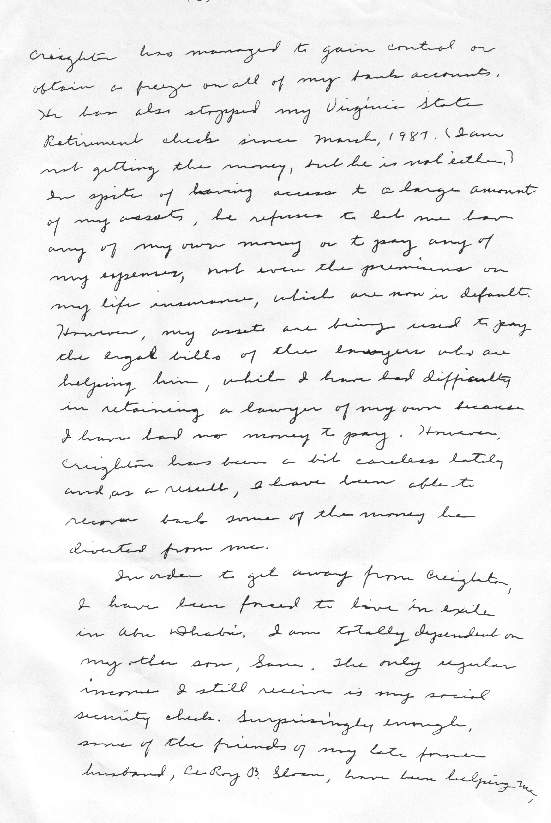 Creighton has managed to gain control or
obtain a freeze on all of my bank accounts.
He has also stopped my Virginia State
Retirement check since March, 1987. (I am
not getting the money, but he is not either.)
In spite of having access to a large amount
of my assets, he refuses to let me have
any of my own money or to pay any of
my expenses, not even the premiums on
my life insurance, which are now in default.
However, my assets are being used to pay
the legal bills of the lawyers who are
helping him, while I have had difficulty
in retaining a lawyer of my own because
I have had no money to pay. However,
Creighton has been a bit careless lately
and, as a result, I have been able to
recover back some of the money he
diverted from me.
In order to get away from Creighton,
I have been forced to live in exile
in Abu Dhabi. I am totally dependent on
my other son, Sam. The only regular
income I still receive is my social
security check. Surprisingly enough,
some of the friends of my late former
husband, LeRoy B. Sloan, have been helping me,